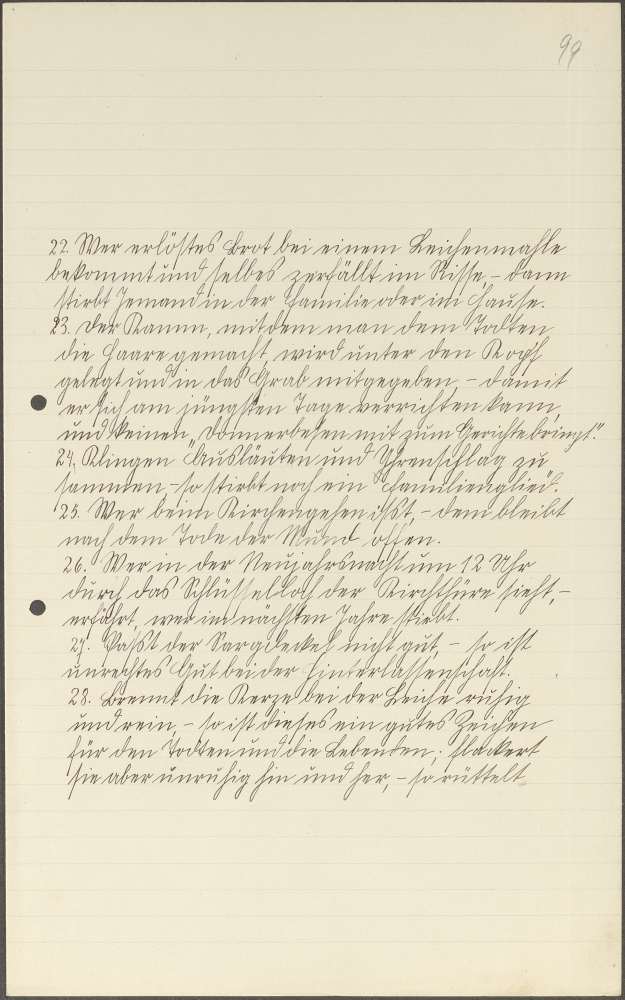 99
22. Wer erlöstes Brot bei einem Leichenmahle
bekommt und selbes zerfällt im Risse, – dann
stirbt Jemand in der Familie oder im Hause.
23. Der Kamm, mit dem man dem Todten
die Haare gemacht, wird unter den Kopf
gelegt und in das Grab mitgegeben, – damit
er sich am jüngsten Tage verrichten kann,
und keinen „Donnerbesen mit zum Gerichte bringt".
24. Klingen Ausläuten und Uhrenschlag zu
sammen, – so stirbt noch ein Familienglied.
25. Wer beim Kirchengehen isst, – dem bleibt
nach dem Tode der Mund offen.
26. Wer in der Neujahrsnacht um 12 Uhr
durch das Schlüsselloch der Kirchthüre sieht, –
erfährt, wer im nächsten Jahre stirbt.
27. Passt der Sargdeckel nicht gut, – so ist
unrechtes Gut bei der Hinterlassenschaft.
28. Brennt die Kerze bei der Leiche ruhig
und rein, – so ist dieses ein gutes Zeichen
für den Todten und die Lebenden; flackert
sie aber unruhig hin und her, – so rüttelt